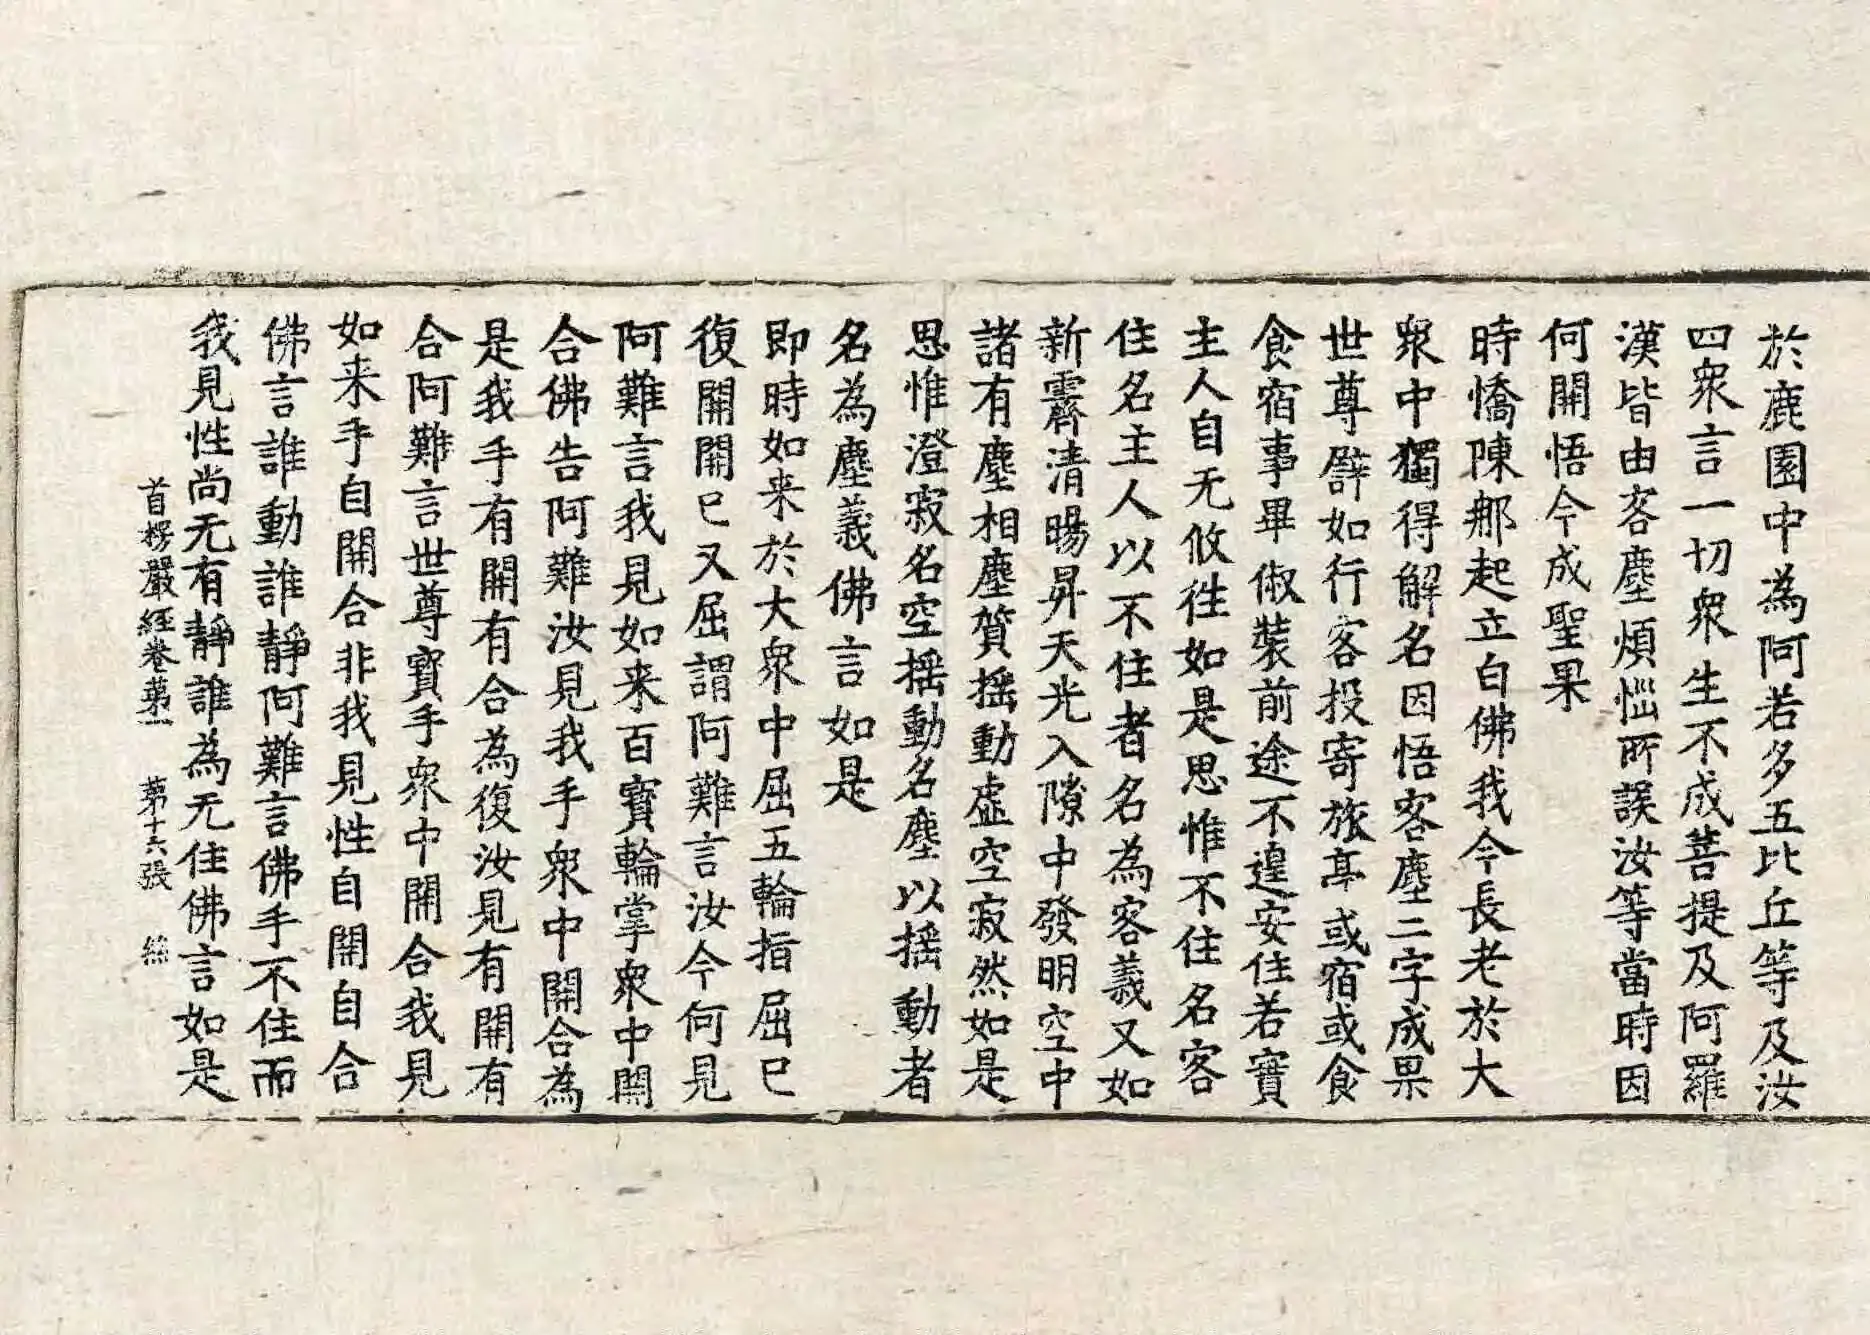 於鹿園中為阿若多五比丘等及汝
四衆言一切衆生不成菩提及阿羅
漢皆由客塵煩惱所誤汝等當時因
何開悟今成聖果
時憍陳那起立白佛我今長老於大
衆中獨得解名因悟客塵二字成果
世尊譬如行客投寄旅亭或宿或食
食宿事畢俶裝前途不遑安住若實
主人自无攸往如是思惟不住名客
住名主人以不住者名為客義又如
新霽清暘昇天光入隙中發明空中
諸有塵相塵質揺動虛空寂然如是
思惟澄寂名空揺動名塵以揺動者
名為塵義佛言如是
即時如来於大衆中屈五輪指屈已
復開開已又屈謂阿難言汝今何見
阿難言我見如来百寶輪掌衆中開
合佛告阿難汝見我手衆中開合為
是我手有開有合為復汝見有開有
合阿難言世尊寶手衆中開合我見
如来手自開合非我見性自開自合
佛言誰動誰靜阿難言佛手不住而
我見性尚无有靜誰為无住佛言如是
首楞嚴經卷第一 第十六張 絲